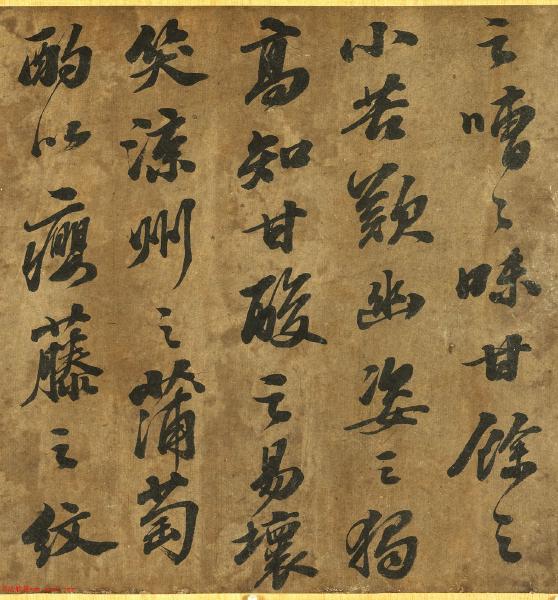 之嘈〻味甘餘之
小苦歎幽姿之獨
高知甘酸之易壞
笑涼州之蒲萄
酌以癭藤之紋